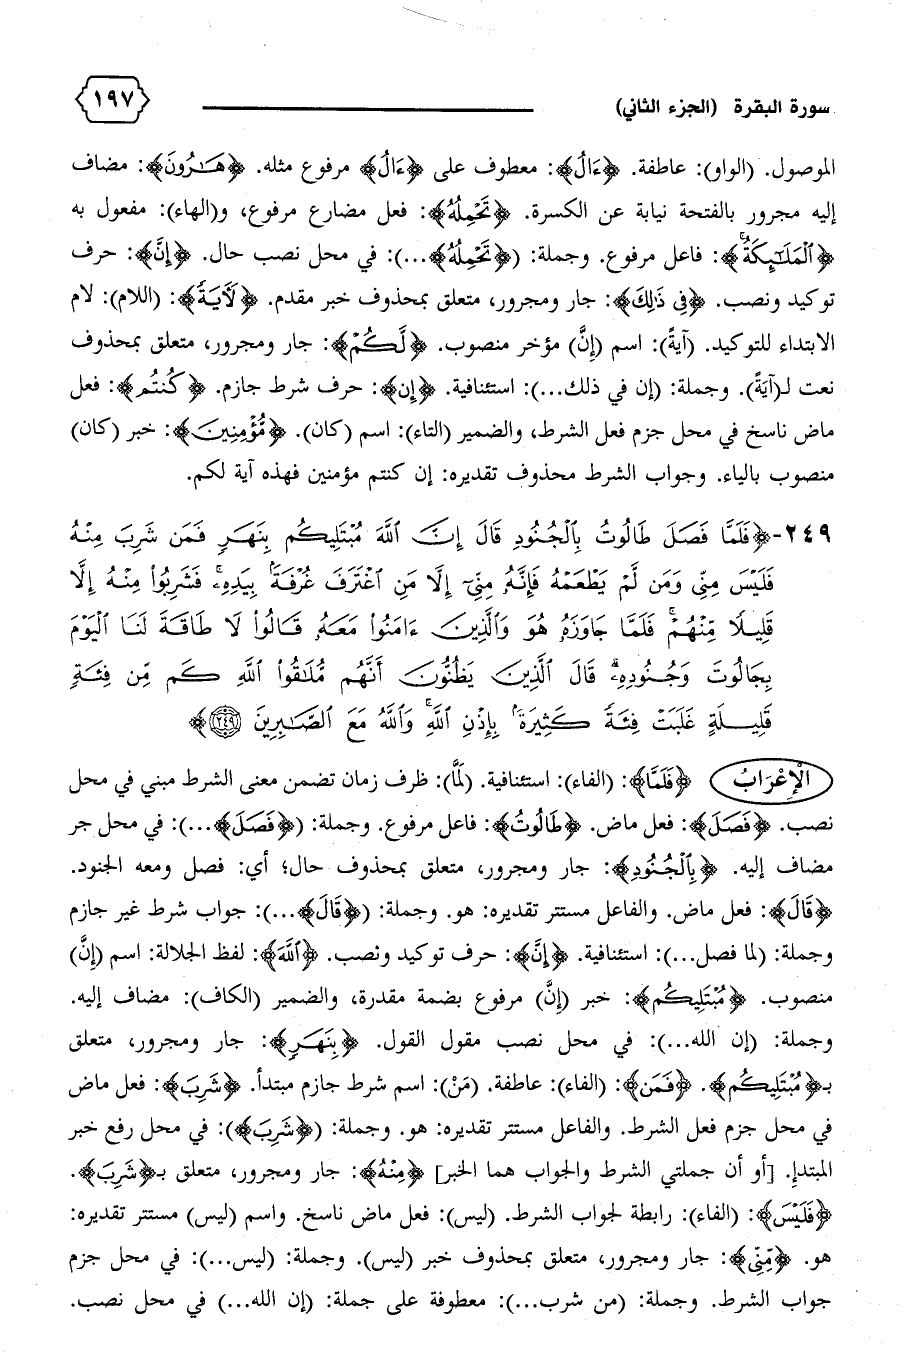 سورة البقرة (الجزء الثاني) ١٩٧
الموصول. (الواو): عاطفة. ﴿ءَالُ﴾: معطوف على ﴿ءَالُ﴾ مرفوع مثله. ﴿هَـٰرُونَ﴾: مضاف
إليه مجرور بالفتحة نيابة عن الكسرة. ﴿تَحْمِلُهُ﴾: فعل مضارع مرفوع، و(الهاء): مفعول به
﴿ٱلْمَلَـٰٓئِكَةُ ۚ﴾: فاعل مرفوع. وجملة: (﴿تَحْمِلُهُ﴾...): في محل نصب حال. ﴿إِنَّ﴾: حرف
توكيد ونصب. ﴿فِى ذَٰلِكَ﴾: جار ومجرور، متعلق بمحذوف خبر مقدم. ﴿لَـَٔايَةً﴾: (اللام): لام
الابتداء للتوكيد. (آيةً): اسم (إنَّ) مؤخر منصوب. ﴿لَّكُمْ﴾: جار ومجرور، متعلق بمحذوف
نعت لـ(آيَةً). وجملة: (إن في ذلك...): استئنافية. ﴿إِن﴾: حرف شرط جازم. ﴿كُنتُم﴾: فعل
ماض ناسخ في محل جزم فعل الشرط، والضمير (التاء): اسم (كان). ﴿مُّؤْمِنِينَ﴾: خبر (كان)
منصوب بالياء. وجواب الشرط محذوف تقديره: إن كنتم مؤمنين فهذه آية لكم.
٢٤٩-﴿فَلَمَّا فَصَلَ طَالُوتُ بِٱلْجُنُودِ قَالَ إِنَّ ٱللَّهَ مُبْتَلِيكُم بِنَهَرٍ فَمَن شَرِبَ مِنْهُ
فَلَيْسَ مِنِّى وَمَن لَّمْ يَطْعَمْهُ فَإِنَّهُۥ مِنِّىٓ إِلَّا مَنِ ٱغْتَرَفَ غُرْفَةًۢ بِيَدِهِۦ ۚ فَشَرِبُوا۟ مِنْهُ إِلَّا
قَلِيلًا مِّنْهُمْ ۚ فَلَمَّا جَاوَزَهُۥ هُوَ وَٱلَّذِينَ ءَامَنُوا۟ مَعَهُۥ قَالُوا۟ لَا طَاقَةَ لَنَا ٱلْيَوْمَ
بِجَالُوتَ وَجُنُودِهِۦ ۚ قَالَ ٱلَّذِينَ يَظُنُّونَ أَنَّهُم مُّلَـٰقُوا۟ ٱللَّهِ كَم مِّن فِئَةٍ
قَلِيلَةٍ غَلَبَتْ فِئَةً كَثِيرَةًۢ بِإِذْنِ ٱللَّهِ ۗ وَٱللَّهُ مَعَ ٱلصَّـٰبِرِينَ ٢٤٩﴾
الْإِعْرَابُ ﴿فَلَمَّا﴾: (الفاء): استئنافية. (لَمَّا): ظرف زمان تضمن معنى الشرط مبني في محل
نصب. ﴿فَصَلَ﴾: فعل ماض. ﴿طَالُوتُ﴾: فاعل مرفوع. وجملة: (﴿فَصَلَ﴾...): في محل جر
مضاف إليه. ﴿بِٱلْجُنُودِ﴾: جار ومجرور، متعلق بمحذوف حال؛ أي: فصل ومعه الجنود.
﴿قَالَ﴾: فعل ماض. والفاعل مستتر تقديره: هو. وجملة: (﴿قَالَ﴾...): جواب شرط غير جازم
وجملة: (لما فصل...): استئنافية. ﴿إِنَّ﴾: حرف توكيد ونصب. ﴿ٱللَّهَ﴾: لفظ الجلالة: اسم (إنَّ)
منصوب. ﴿مُبْتَلِيكُم﴾: خبر (إنَّ) مرفوع بضمة مقدرة، والضمير (الكاف): مضاف إليه.
وجملة: (إن الله...): في محل نصب مقول القول. ﴿بِنَهَرٍ﴾: جار ومجرور، متعلق
بـ﴿مُبْتَلِيكُم﴾. ﴿فَمَن﴾: (الفاء): عاطفة. (مَنْ): اسم شرط جازم مبتدأ. ﴿شَرِبَ﴾: فعل ماض
في محل جزم فعل الشرط. والفاعل مستتر تقديره: هو. وجملة: (﴿شَرِبَ﴾): في محل رفع خبر
المبتدإ. [أو أن جملتي الشرط والجواب هما الخبر] ﴿مِنْهُ﴾: جار ومجرور، متعلق بـ﴿شَرِبَ﴾.
﴿فَلَيْسَ﴾: (الفاء): رابطة لجواب الشرط. (ليس): فعل ماض ناسخ. واسم (ليس) مستتر تقديره:
هو. ﴿مِنِّى﴾: جار ومجرور، متعلق بمحذوف خبر (ليس). وجملة: (ليس...): في محل جزم
جواب الشرط. وجملة: (من شرب...): معطوفة على جملة: (إن الله...) في محل نصب.